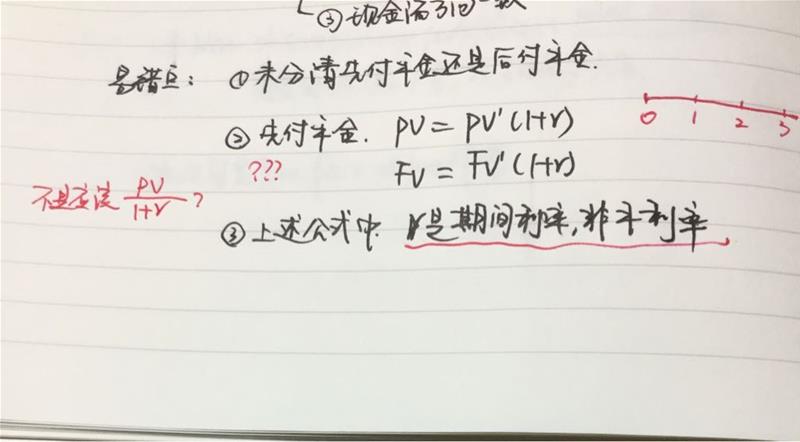 ③现金流
易错点：①未分清先付年金还是后付年金.
②先付年金. PV = PV'(1+r)
0 1 2 3
??? FV = FV'(1+r)
不是应该 PV/1+r ?
③上述公式中. r是期间利率,非年利率